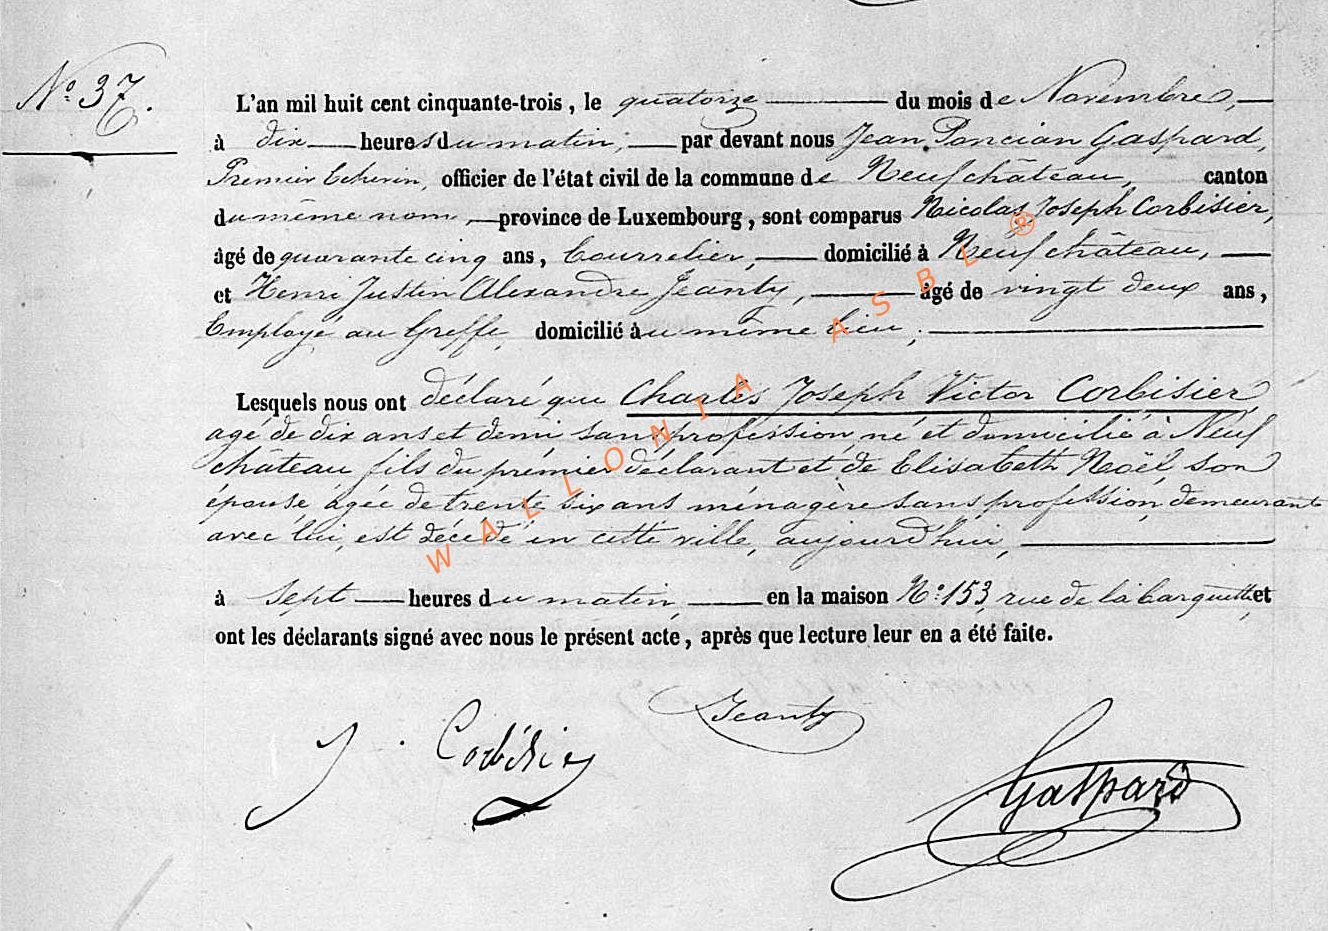 N.º 37.
L'an mil huit cent cinquante-trois, le quatorze du mois de Novembre,
à dix heures du matin, par devant nous Jean Poncian Gaspard,
Premier Echevin, officier de l'état civil de la commune de Neufchâteau, canton
du même nom, province de Luxembourg, sont comparus Nicolas Joseph Corbisier,
âgé de quarante cinq ans, bourrelier, domicilié à Neufchâteau,
et Henri Justin Alexandre Jeanty, âgé de vingt deux ans,
Employé au Greffe, domicilié àu même lieu ;
Lesquels nous ont déclaré que Charles Joseph Victor Corbisier
agé de dix ans et demi sans profession, né et domicilié à Neuf
château fils du prémier déclarant et de Elisabeth Noël son
épouse, agée de trente six ans ménagère sans profession, demeurant
avec lui, est décédé en cette ville, aujourd'hui,
à sept heures du matin, en la maison N.º 153, rue de la barquette, et
ont les déclarants signé avec nous le présent acte, après que lecture leur en a été faite.
J. Corbisier
Jeanty
Gaspard
WALLONIA ASBL ®